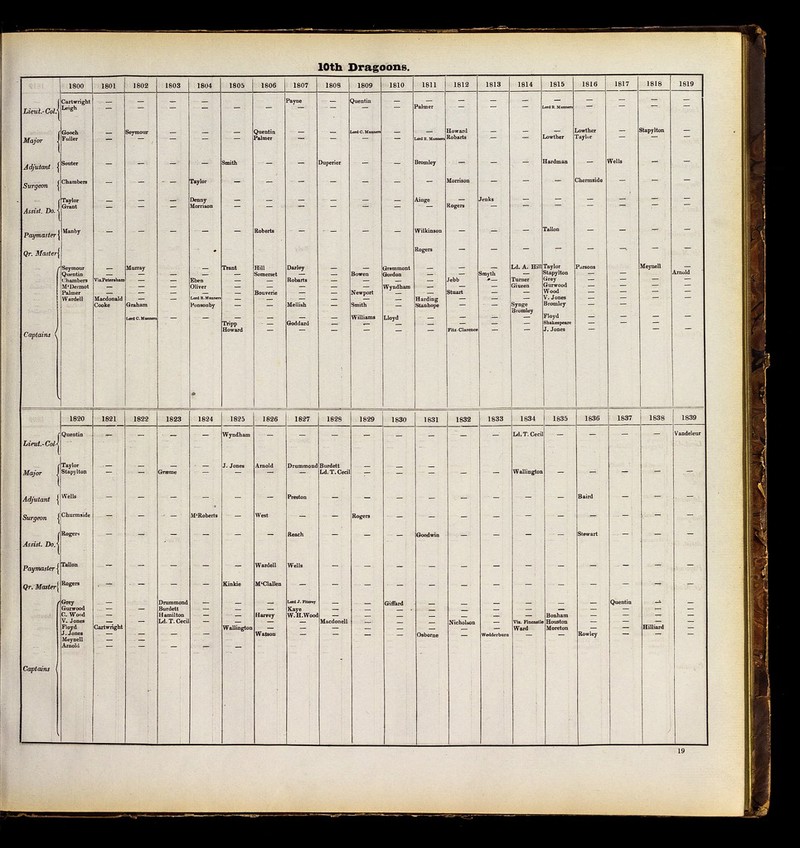 10th Dragoons.
1800 1801 1802 1803 1804 1805 1806 1807 1808 1809 1810 1811 1812 1813 1814 1815 1816 1817 1818 1819
Cartwright — — — — Payne — Quentin — — — — — — — — — —
Lieut.-Col. Leigh — — — — — — — — — — Palmer — — — Lord R. Manners — — — —
Gooch — Seymour — — — Quentin — — Lord C. Manners — — Howard — — — Lowther — Stapylton —
Major Fuller — — — — — Palmer — — — — Lord R. Manners Robarts — — Lowther Taylor — — —
Adjutant Souter — — — — Smith — — Duperier — — Bromley — — — Hardman — Wells — —
Surgeon Chambers — — — Taylor — — — — — — — Morrison — — — Chermside — — —
Taylor — — — Denny — — — — — — Ainge — Jenks — — — — — —
Assist. Do. Grant — — — Morrison — — — — — — — Rogers — — — — — — —
Paymaster Manby — — — — — Roberts — — — — Wilkinson — — — Tallon — — — —
Qr. Master Rogers — — — — — — — —
Seymour — Murray — — Trent Hill Darley — — Grammont — — — Ld. A. Hill Taylor Parsons — Meynell —
Quentin — — — — — Somerset — — Bowen Gordon — — Smyth — Stapylton — — — Arnold
Chambers Vis. Petersham — — Eben — — Robarts — — — — Jebb — Turner Grey — — —
M‘Dermot — — — Oliver — — — — — Wyndham — — — Giuzen Gurwood — — — —
Palmer — — — — — Bouverie — — Newport — — Stuart — — Wood — — — —
Wardell Macdonald — — Lord R. Manners — — — — — — Harding — — — V. Jones — — — —
Cooke Graham — Ponsonby — — Mellish — Smith — Stanhope — — Synge Bromley — — — —
Lord C. Manners — — — — — — Williams Lloyd — — — Bromley Floyd — — — —
Tripp — Goddard — — — — — — — Shakespeare — — — —
Captains Howard — — — — — — Fitz Clarence — — J. Jones — — —
1820 1821 1822 1823 1824 1825 1826 1827 1828 1829 1830 1831 1832 1833 1834 1835 1836 1837 1838 1839
Lieut.-Col. Quentin — — — — Wyndham — — — — — — — — Ld. T. Cecil — — — — Vandeleur
Taylor — — — — J. Jones Arnold Drummond Burdett — — —
Major Stapylton — — Græme — — — — Ld. T. Cecil — — — — — Wallington — — — — —
Adjutant Wells — — — — — — Preston — — — — — — — — Baird — — —
Surgeon Chermside — — — M‘Roberts — West — — Rogers — — — — — — — — — —
Assist. Do. Rogers — — — — — — Reach — — — Goodwin — — — — Stewart — — —
Paymaster Tallon — — — — — Wardell Wells — — — — — — — — — — — —
Qr. Master Rogers — — — — Kinkie M‘Clallen — — — — — — — — — — — — —
Grey — — Drummond — — — Lord J. Fitzroy — — Giffard — — — — — — Quentin — —
Gurwood — — Burdett — — — Kaye — — — — — — — — — — — —
C. Wood Hamilton — — Harvey W. H. Wood — — — — — — — Bonham — — — —
V. Jones — — Ld. T. Cecil — — — — Macdonell — — — Nicholson — Vis. Fincastle Houston — — — —
Floyd Cartwright — — Wallington — — — — — — — — Ward Moreton — — Hilliard —
J. Jones — — — — Watson — — — — Osborne — Wedderburn — — Rowley — — —
Meynell — —
Arnold — — — — —
Captains
19